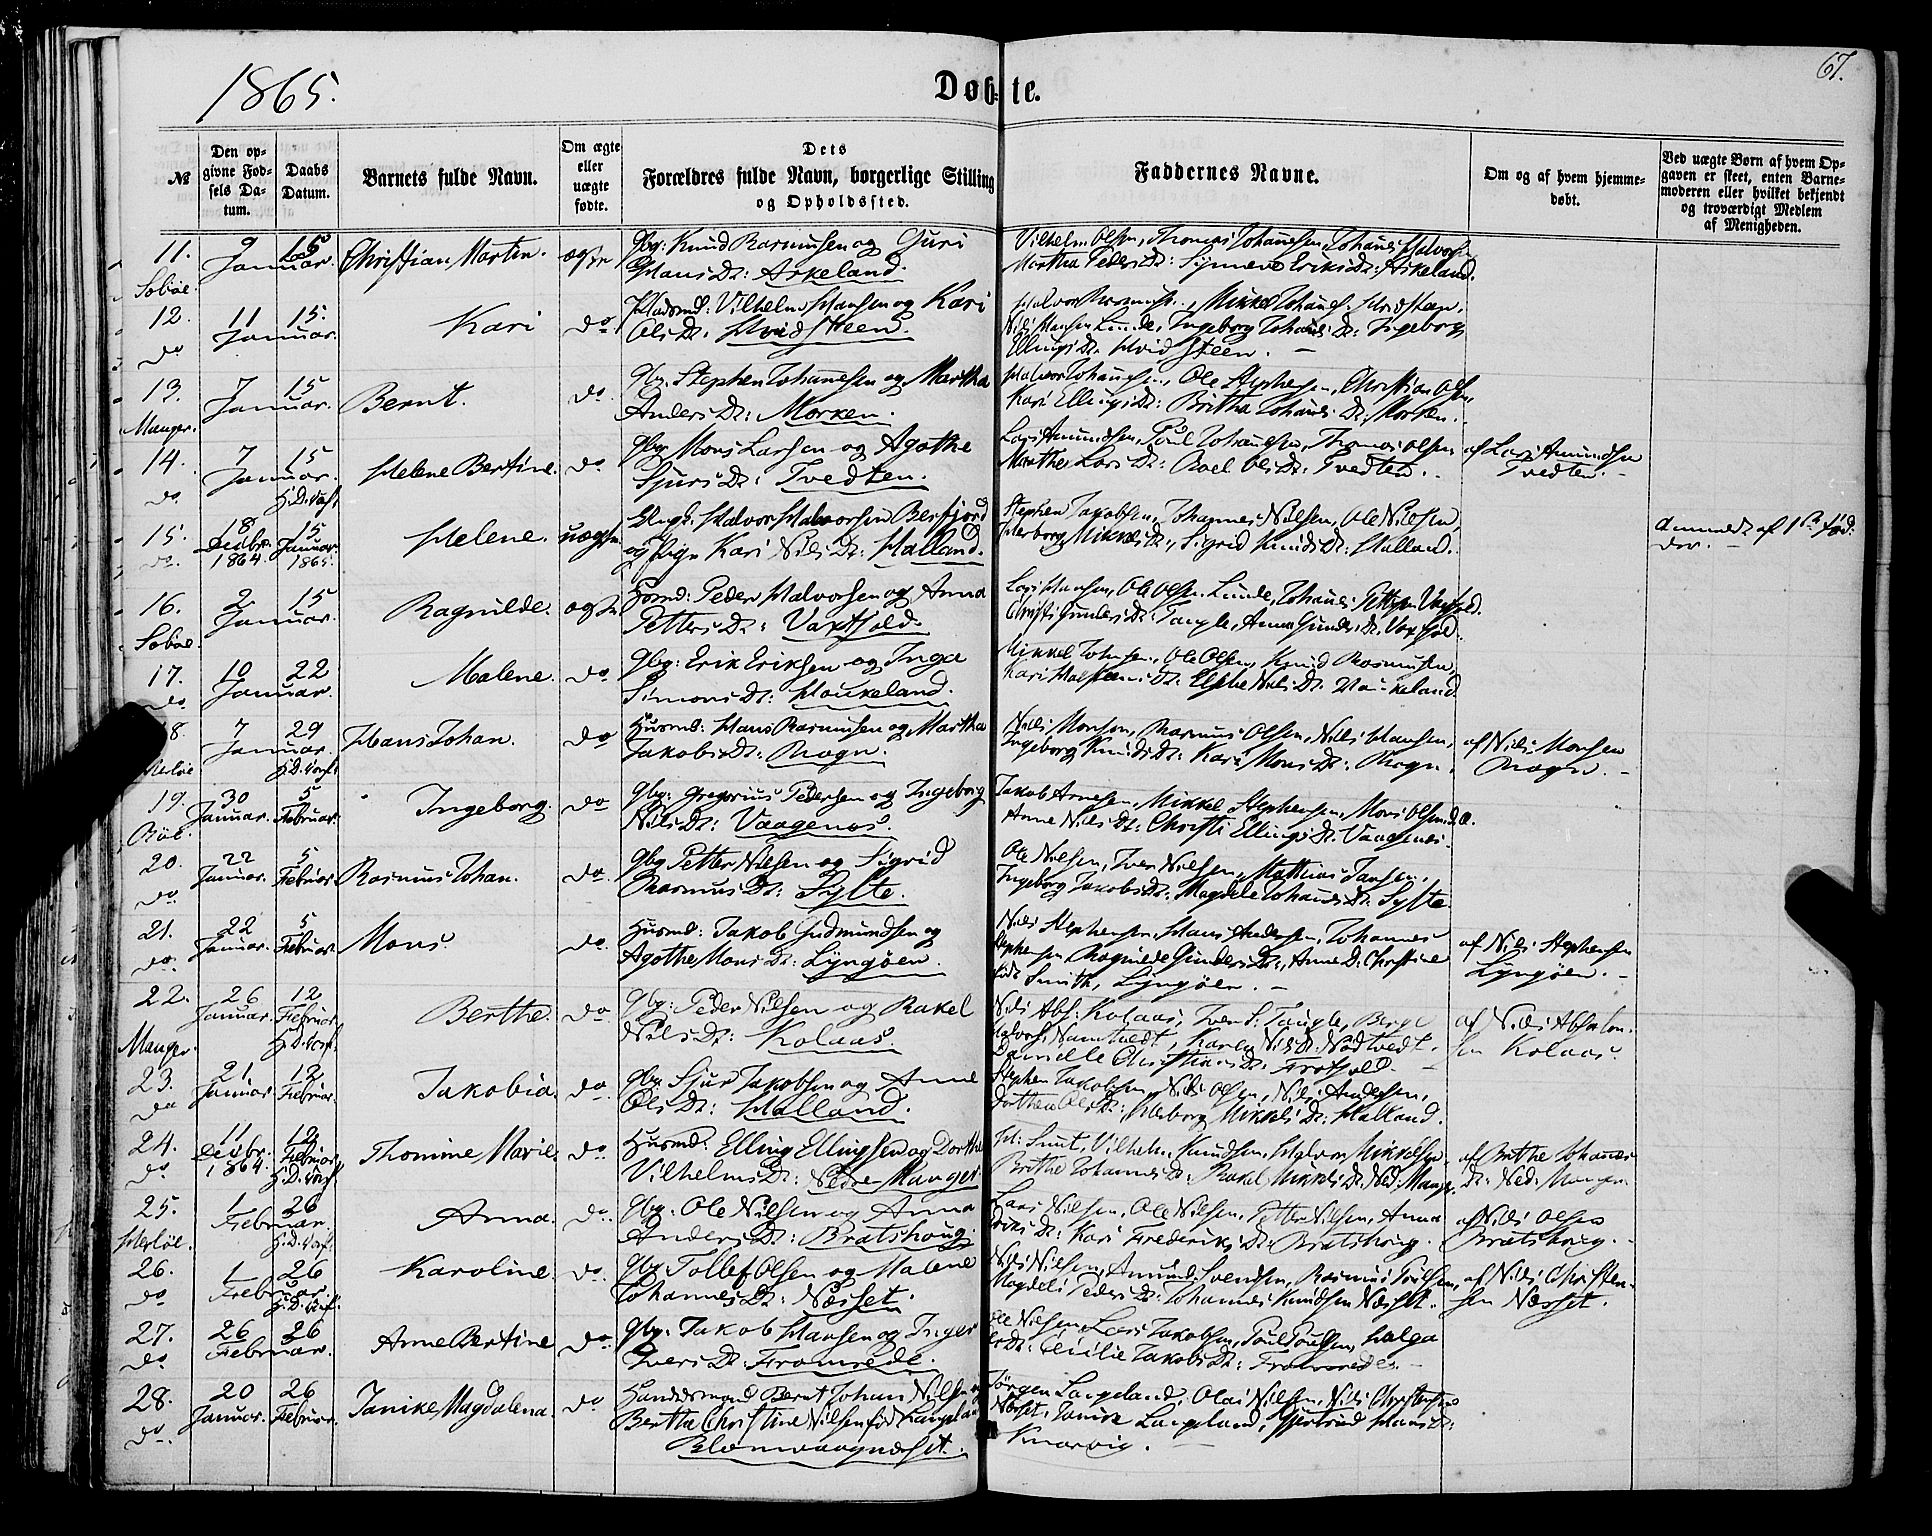 1865.
Døbte.
67.
№
Den opgivne Fødsels Datum.
Daabs Datum.
Barnets fulde Navn.
Om ægte eller uægte fødte.
Dets Forældres fulde Navn, borgerlige Stilling og Opholdssted.
Faddernes Navne.
Om og af hvem hjemmedøbt.
Ved uægte Børn af hvem Opgaven er skeet, enten Barnemoderen eller hvilket bekjendt og troværdigt Medlem af Menigheden.
11. 9 15 Januar. Christian Martin. ægte Gbg: Knud Rasmussen og Guri
Hans Dr: Askeland.
Vilhelm Olsen, Thomas Johannesen, Johannes Halvors.
Martha Peders Dr: Synneve Eriks Dr: Askeland.
12. 11 15. Januar. Kari do Vilhelm Hansen og Kari
do Ols Dr. Hvidsteen.
Halvor Rasmuss., Mikkel Johannes. Hvidsteen,
Nils Hansen Lunde, Ingeborg Johans Dr: Ingeborg
Ellings Dr. Hvidsteen.
13. 7 15 Januar. Bernt. do. Gbg. Stephen Johannesen og Martha
Manger. Anders Dr: Morken.
Halvor Johannesen, Ole Stephensen, Christian Olsen,
Kari Ellings Dr: Britha Johans Dr: Morken.
14. 7 15 Januar. Helene Bertine. do Gbg Mons Larsen og Agathe
do H.D.Vorf. Sjurs Dr: Tvedten.
Lars Amundsen, Poul Johannesen, Thomas Olsen
Marthe Lars Dr: Roel Ols Dr: Tvedten.
af Lars Amundsen
Tvedten.
15. 18 Decbr. 1864. 15 Januar. 1865. Helene. uægte Ungk: Halvor Halvorsen Berfjord
do. og Pige Kari Nils Dr: Halland.
Stephen Jakobsen, Johannes Nilsen, Ole Nilsen,
Herborg Mikkels Dr., Sigrid Knuds Dr: Halland.
16. 2 15 Januar. Ragnilde. ægte Huusmd: Peder Halvorsen og Anna
Sobøe. Petters Dr: Vaxtfold.
Lars Hansen, Ole Olsen Lunde, Johannes Pettersen
Christi Gunders Dr: Tangle, Anna Gunders Dr.
17. 10 22 Januar. Malene. do Gbg: Erik Eriksen og Inga
do Simons Dr: Houkeland.
Mikkel Johnsen, Ole Olsen, Knud Rasmussen,
18. 7 29 Januar. Hans Johan. do Huusmd: Hans Rasmussen og Martha
H.D.Vorf. Jakobs Dr: Rogn.
Nils Monsen, Rasmus Olsen, Nils Hansen,
Ingeborg Knuds Dr: Kari Mons Dr: Rogn.
af Nils Monsen
Rogn.
19. 30 Januar. 5 Februar. Ingeborg. do Gbg: Gregorius Pedersen og Ingeborg
Nils Dr: Vaagenes.
Jakob Arnesen, Mikkel Stephensen, Mons Olsen
Anne Nils Dr: Christi Ellings Dr. Vaagenes.
20. 22 Januar. 5 Februar. Rasmus Johan. do. Gbg Petter Nilsen og Sigrid
do Rasmus Dr: Sylte.
Ole Nilsen, Iver Nilsen, Mathias Jansen,
Ingeborg Jakobs Dr: Magdele Johans Dr: Sylte
21. 22 Januar. 5 Februar Mons. do. Huusmd: Jakob Gudmundsen og
do. Agathe Mons Dr: Lyngøen.
Nils Stephensen, Hans Andersen, Johannes
Stephensen Ragnilde Gunders Dr., Anne D. Christine
født Smith, Lyngøen.
af Nils Stephensen
Lyngøen.
22. 26 Januar. 12 Februar. Berthe. do Gbg: Peder Nilsen og Rakel
Manger. H.D.Vorf. Nils Dr: Kolaas.
Nils Abs. Kolaas, Iver S. Tangle, Berge
Halvors. Namtvedt, Karen Nils D. Nødtvedt.
Danielle Christians Dr:
af Nils Absalon-
sen Kolaas.
23. 21 Januar. 12 Februar. Jakobia. do Gbg Sjur Jakobsen og Anne
do Ols Dr: Halland.
Stephen Jakobsen, Nils Olsen, Nils Andersen,
Dorthea Ols Dr: Herborg Mikkels Dr: Halland.
24. 11 Decbr. 1864. 12 Februar Thomine Marie. do Huusmd. Elling Ellingsen og Dorthe
do H.D.Vorf. Vilhelms Dr: Nedre Manger.
Vilhelm Knudsen, Halvor Mikkelsen
Brithe Johannes Dr: Rakel Mikkels Dr: Ned: Manger.
af Brithe Johannes
Dr: Ned: Manger.
25. 1 26 Februar. Anna. do. Gbg: Ole Nilsen og Anna
Herløe. H.D.Vorf. Anders Dr: Bratshoug.
Lars Nilsen, Ole Nilsen, Petter Nilsen, Anna
Eriks Dr: Kari Frederiks Dr: Bratshoug.
af Nils Olsen
Bratshoug.
26. 1 26 Februar. Karoline. do. Gbg Tollef Olsen og Malene
do H.D.Vorf. Johannes Dr: Næsset.
Nils Nilsen, Amund Svendsen, Rasmus
Magdeli Peders Dr: Johannes Knudsen Næsset.
af Nils Christen-
sen Næsset.
27. 26 26 Februar. Anne Bertine do Gbg: Jakob Hansen og Inger
do Ivers Dr: Fromrede.
Ole Nilsen, Lars Jakobsen, Poul Poulsen, Helga
Cicilie Jakobs Dr: Fromrede.
28. 20 Januar. 26 Februar. Janike Magdalena. do Handelsmand Bernt Johan Nilsen og
do. Bertha Christine Nilsen født Langeland
Blomvaagnæsset.
Jørgen Langeland, Olai Nilsen, Nils Christensen
Næsset, Janike Langeland, Gjertrud Hans Dr:
Knarvig.